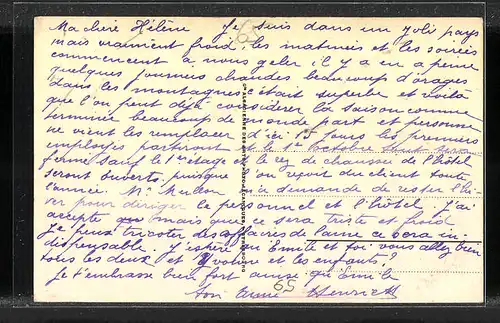 Ma chère Hélène Je suis dans un joli pays
mais vraiment froid, les matinées et les soirées
commencent à nous geler il y a eu à peine
quelques journées chaudes beaucoup d'orages
dans les montagnes c'était superbe et voilà
que l'on peut déjà considérer la saison comme
terminée beaucoup de monde part et personne
ne vient les remplacer d'ici 15 jours les premiers
employés partiront et le 1er octobre tout sera
fermé sauf le 1er étage et le rez de chaussée de l'hôtel
seront ouverts puisque l'on reçoit du client toute
l'année. Mr a demandé de rester l'hi-
ver pour diriger le personnel et l'hôtel j'ai
accepté mais que ce sera triste et froid
Je peux tricoter des affaires de laine ce sera in-
dispensable. J'espère qu'Emile et toi vous allez bien
tous les deux et Yvonne et les enfants?
Je t'embrasse bien fort ainsi qu'Emile
Ton
65
59